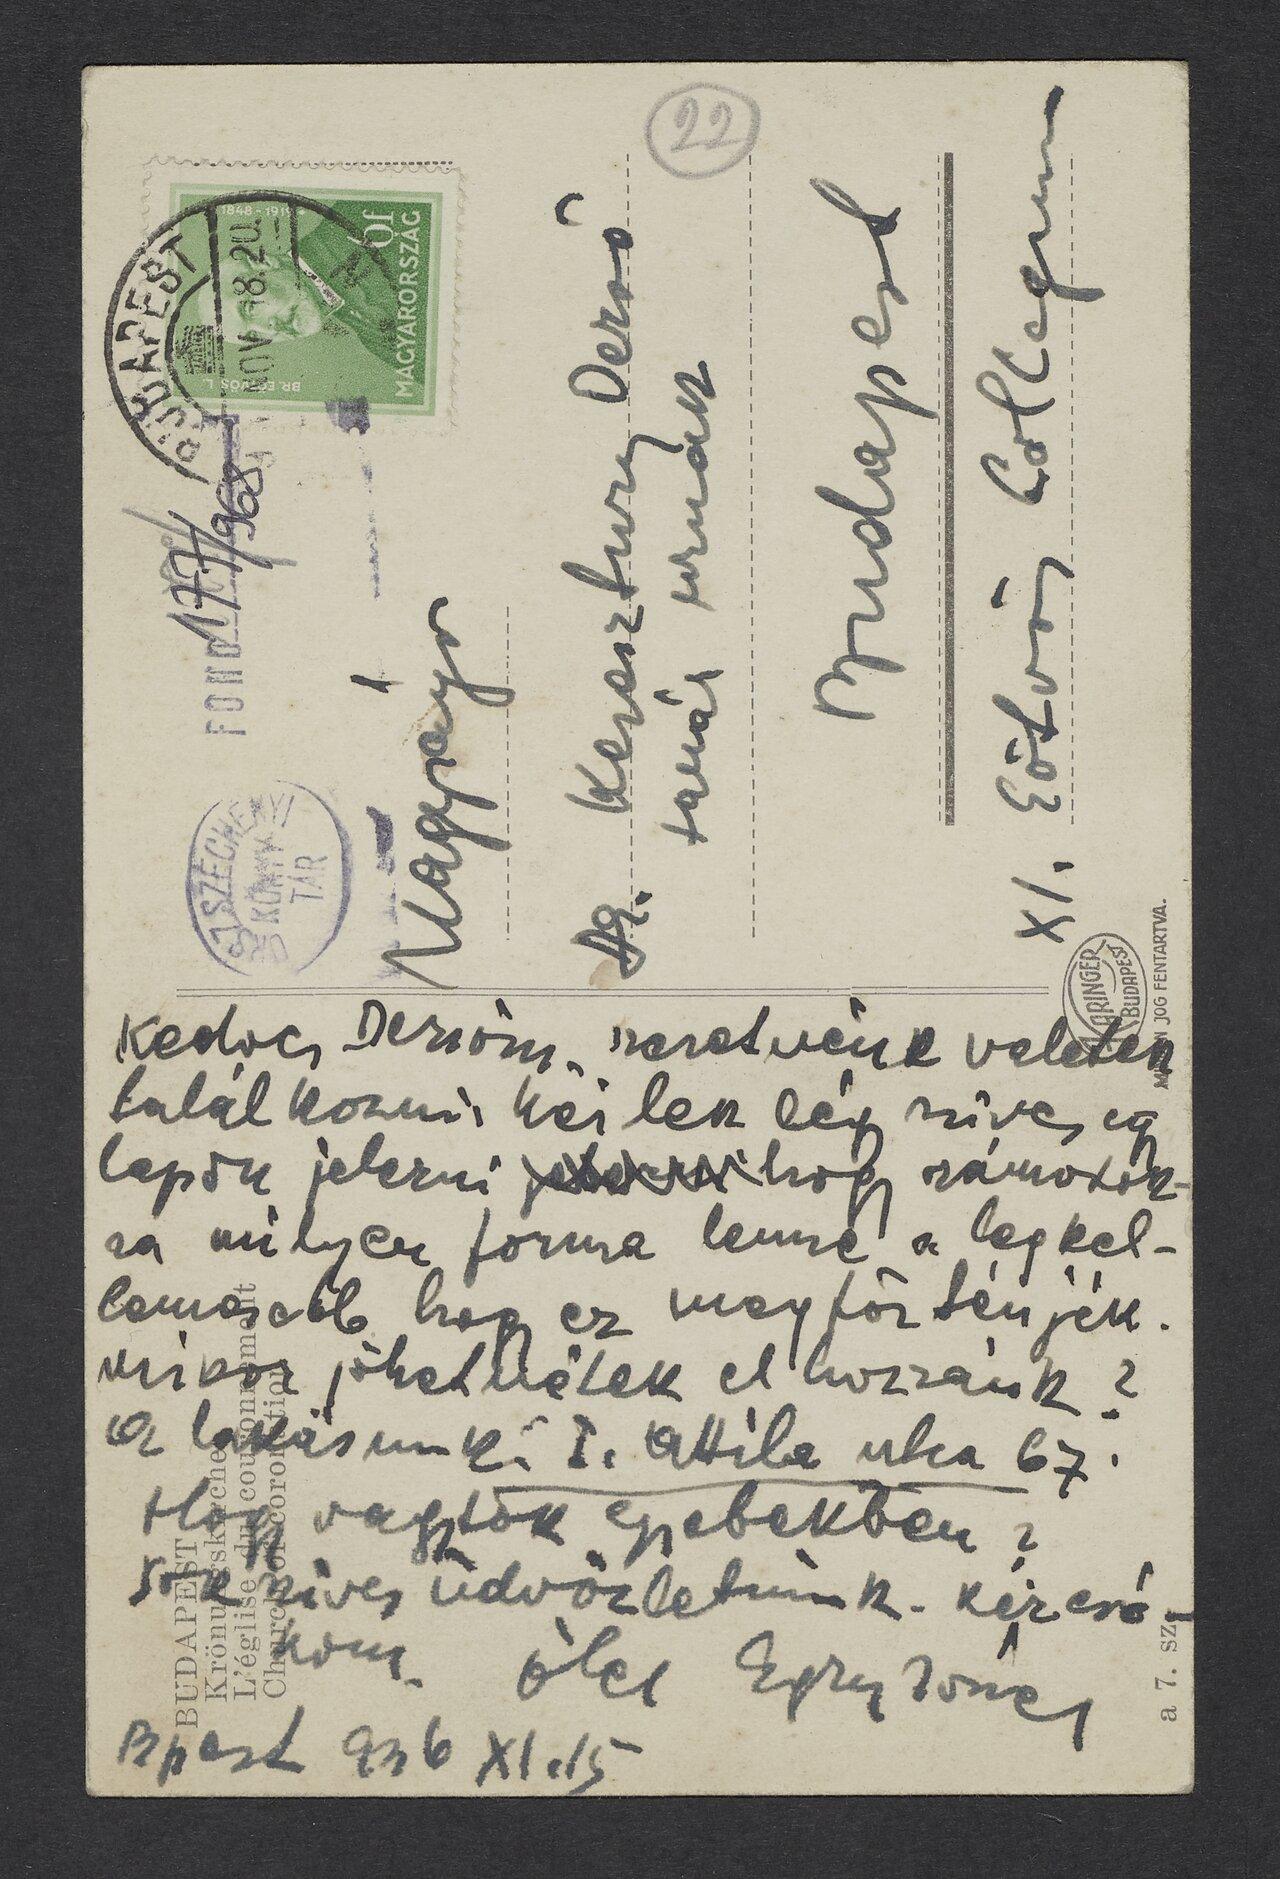 22
MAGYARORSZÁG
6f
1848-1919
BR. EÖTVÖS L.
BUDAPEST
NOV. 18. 20
FOND
177/968
SZÉCHÉNYI
KÖNYV
TÁR
Nagyságos
Dr. Keresztury Dezső
tanár urnak
Budapest
XI. Eötvös Collegium
KARINGER
BUDAPEST
JOG FENTARTVA.
Kedves Dezsőm, szeretnénk veletek
találkozni. Kérlek légy szives egy
lapon jelezni hogy számotok-
ra milyen forma lenne a legkel-
lemesebb hogy ez megtörténjék.
Mikor jöhetnétek el hozzánk?
A lakásunk: I. Attila utca 67.
Hogy vagytok egyebekben?
Sok szives üdvözletünk. Kézcsó-
kom. ölel Egry József
Bpest 936 XI. 15
BUDAPEST
Krönungskirche
L'église du couronnement
Church of coronation
a 7. sz.